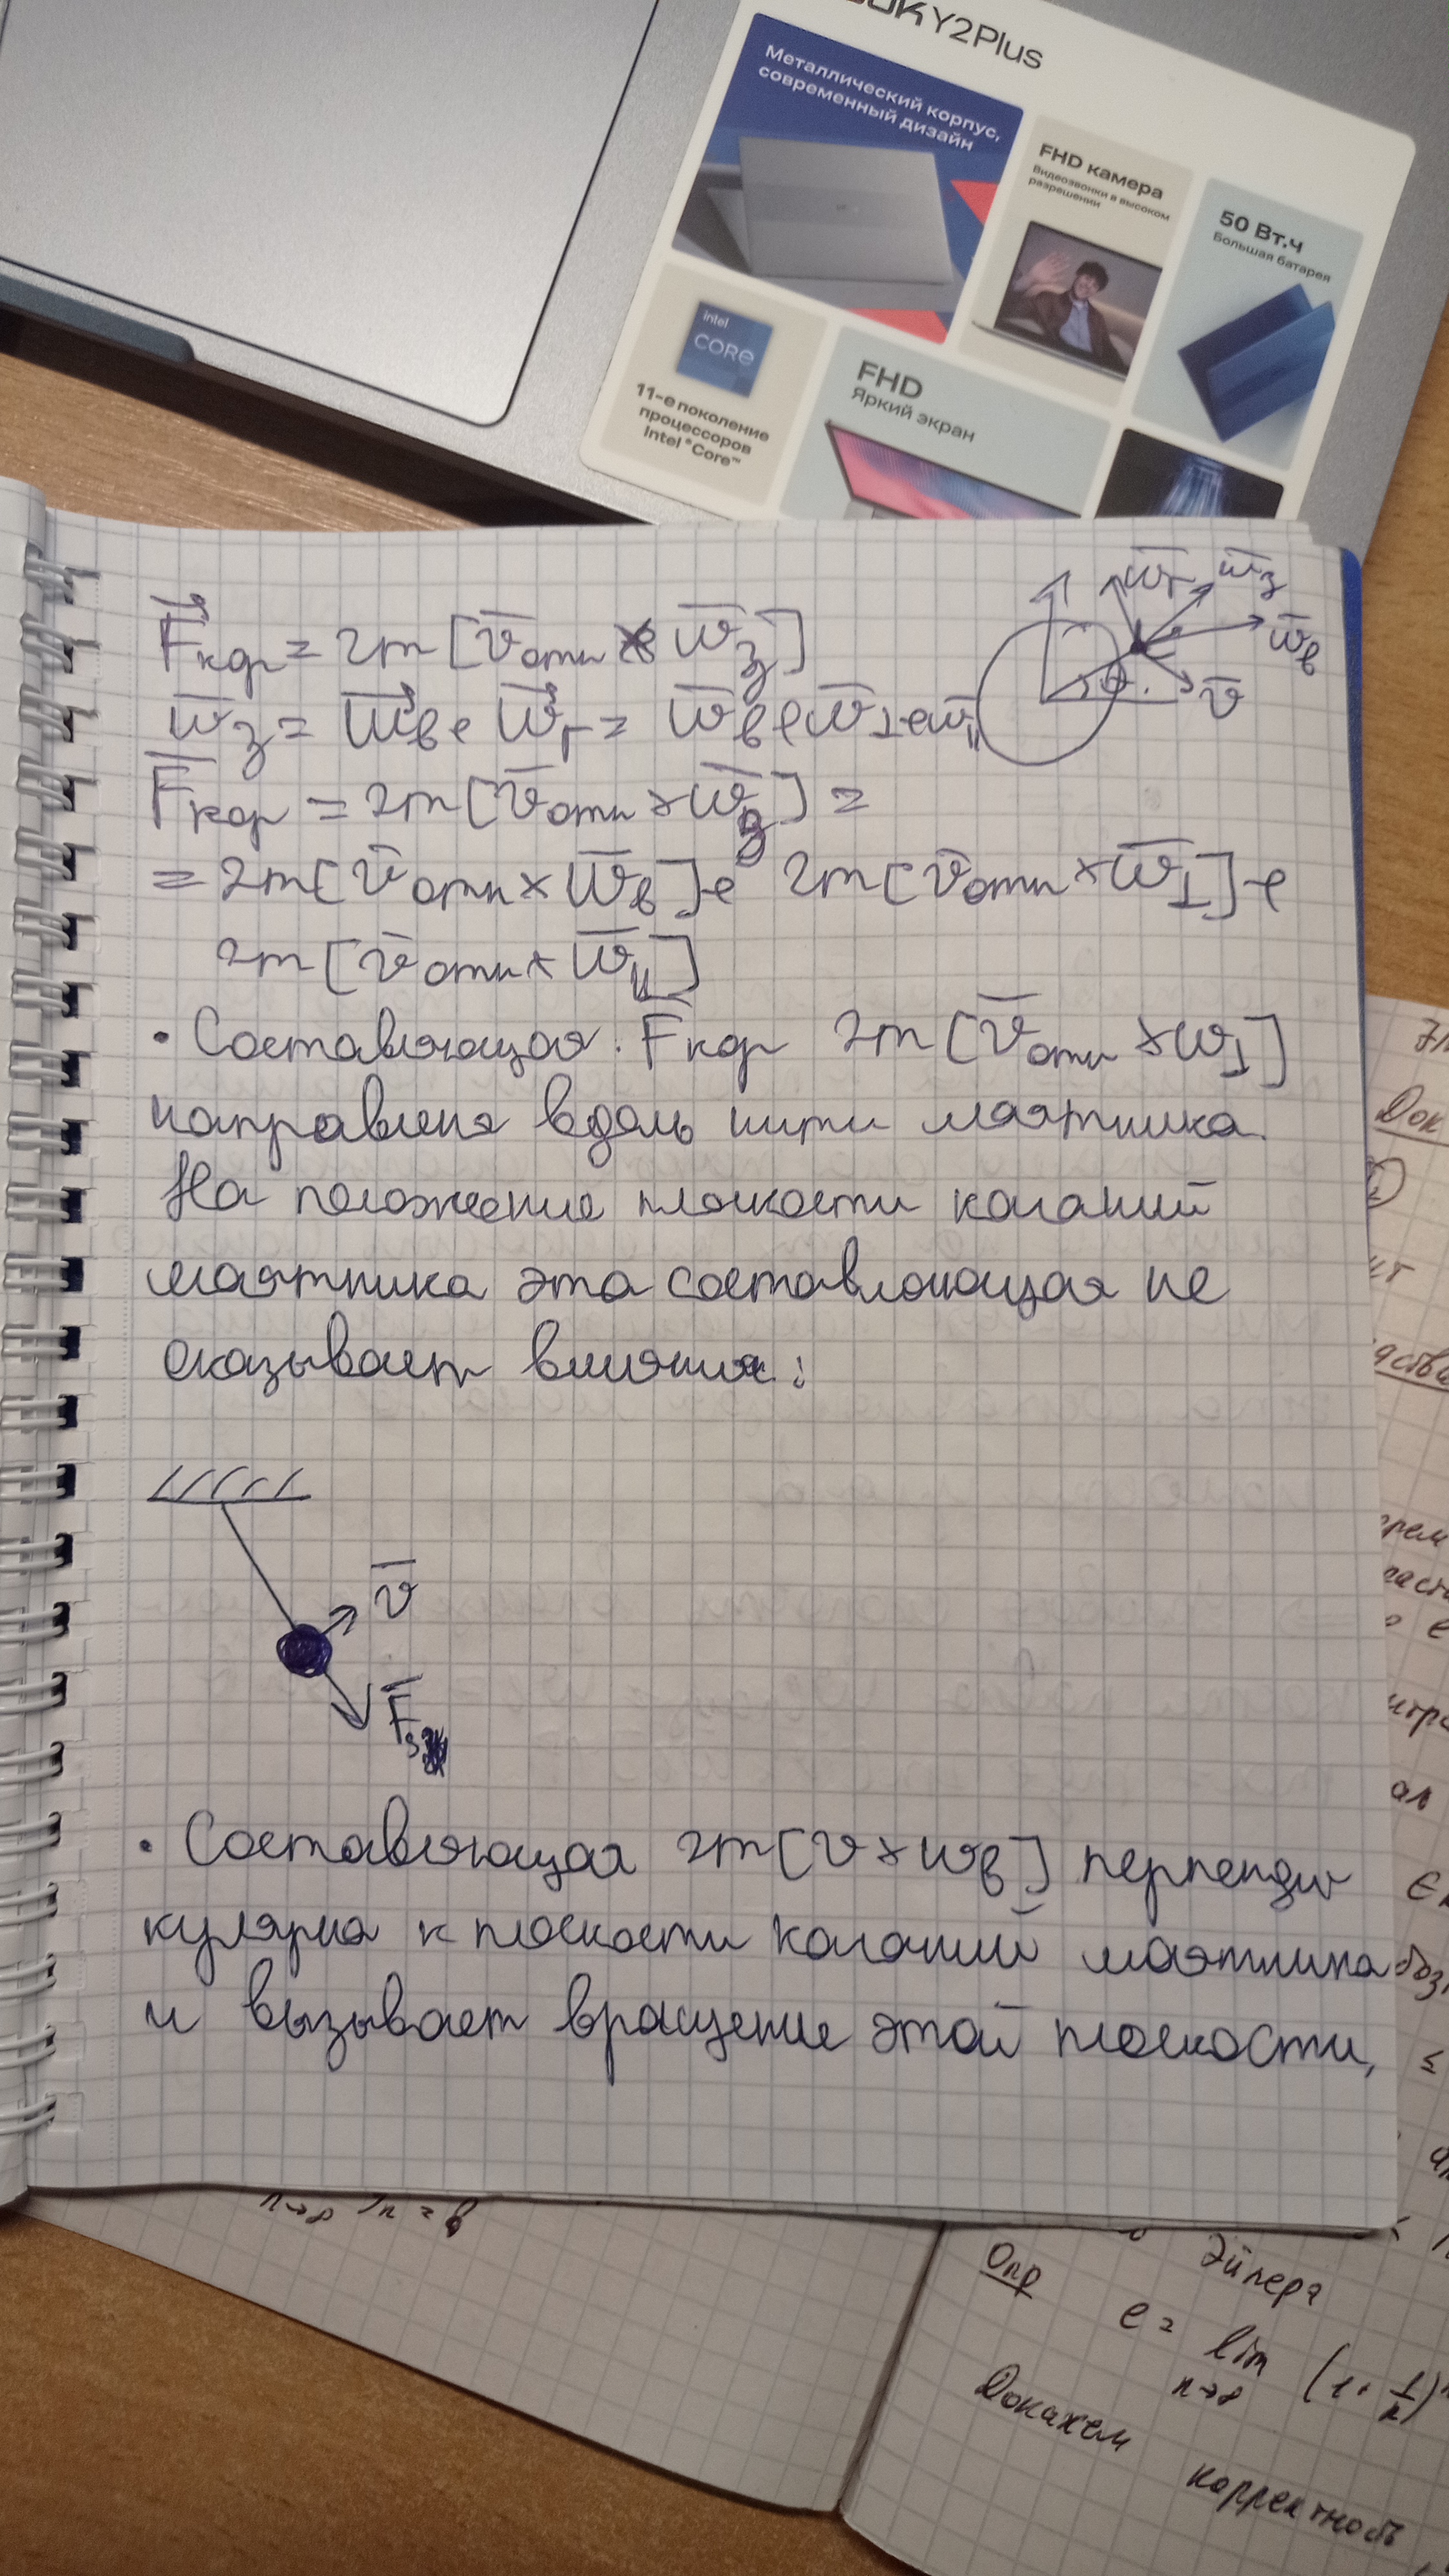 Y2Plus
Металлический корпус,
современный дизайн
FHD камера
Видеозвонки в высоком
разрешении
50 Вт.ч
Большая батарея
intel
CORE
11-е поколение
процессоров
Intel® Core™
FHD
Яркий экран
F⃗кор = 2m [v̄отн × w̄з]
w̄з = w⃗в + w⃗г = w̄в + w̄⊥ + w̄||
F̄кор = 2m [v̄отн × w̄з] =
= 2m [v̄отн × w̄в] + 2m [v̄отн × w̄⊥] +
2m [v̄отн × w̄||]
w̄г w̄з
w̄в
v̄
· Составляющая Fкор 2m [v̄отн × w⊥]
направлена вдоль нити маятника.
На положение плоскости качаний
маятника эта составляющая не
оказывает влияния:
v̄
F̄з
· Составляющая 2m [v × wв] перпенди
кулярна к плоскости качаний маятника
и вызывает вращение этой плоскости,
Док
n→∞
Эйлера
Опр
e = lim (1 + 1/n)
n→∞
Докажем
корректность